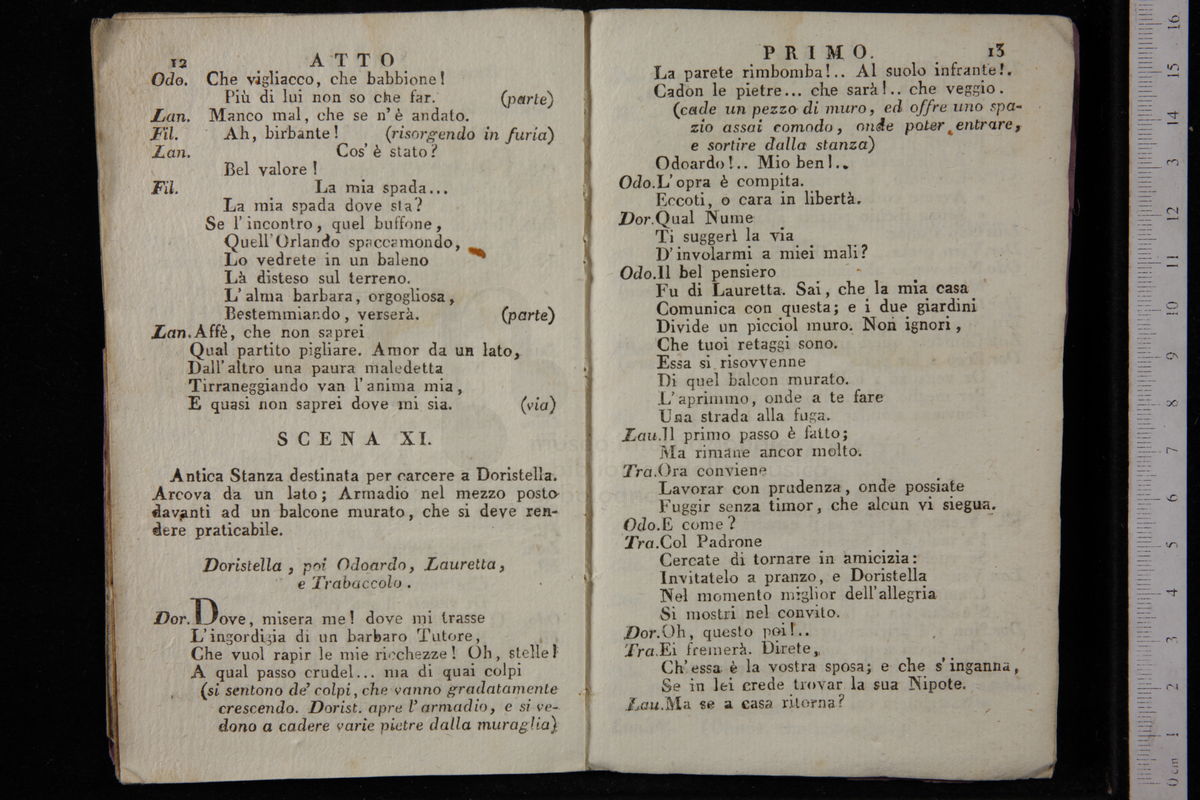 12 ATTO
Odo. Che vigliacco, che babbione!
Più di lui non so che far. (parte)
Lan. Manco mal, che se n'è andato.
Fil. Ah, birbante! (risorgendo in furia)
Lan. Cos'è stato?
Bel valore!
Fil. La mia spada...
La mia spada dove sta?
Se l'incontro, quel buffone,
Quell'Orlando spaccamondo,
Lo vedrete in un baleno
Là disteso sul terreno.
L'alma barbara, orgogliosa,
Bestemmiando, verserà. (parte)
Lan. Affè, che non saprei
Qual partito pigliare. Amor da un lato,
Dall'altro una paura maledetta
Tirraneggiando van l'anima mia,
E quasi non saprei dove mi sia. (via)
SCENA XI.
Antica Stanza destinata per carcere a Doristella.
Arcova da un lato; Armadio nel mezzo posto
davanti ad un balcone murato, che si deve ren-
dere praticabile.
Doristella, poi Odoardo, Lauretta,
e Trabaccolo.
Dor. Dove, misera me! dove mi trasse
L'ingordigia di un barbaro Tutore,
Che vuol rapir le mie ricchezze! Oh, stelle!
A qual passo crudel... ma di quai colpi
(si sentono de' colpi, che vanno gradatamente
crescendo. Dorist. apre l'armadio, e si ve-
dono a cadere varie pietre dalla muraglia)
PRIMO. 13
La parete rimbomba!.. Al suolo infrante!.
Cadon le pietre... che sarà!.. che veggio.
(cade un pezzo di muro, ed offre uno spa-
zio assai comodo, onde poter entrare,
e sortire dalla stanza)
Odoardo!.. Mio ben!..
Odo. L'opra è compita.
Eccoti, o cara in libertà.
Dor. Qual Nume
Ti suggerì la via
D'involarmi a miei mali?
Odo. Il bel pensiero
Fu di Lauretta. Sai, che la mia casa
Comunica con questa; e i due giardini
Divide un picciol muro. Non ignori,
Che tuoi retaggi sono.
Essa si risovvenne
Di quel balcon murato.
L'aprimmo, onde a te fare
Una strada alla fuga.
Lau. Il primo passo è fatto;
Ma rimane ancor molto.
Tra. Ora conviene
Lavorar con prudenza, onde possiate
Fuggir senza timor, che alcun vi siegua.
Odo. E come?
Tra. Col Padrone
Cercate di tornare in amicizia:
Invitatelo a pranzo, e Doristella
Nel momento miglior dell'allegria
Si mostri nel convito.
Dor. Oh, questo poi!..
Tra. Ei fremerà. Direte,
Ch'essa è la vostra sposa; e che s'inganna,
Se in lei crede trovar la sua Nipote.
Lau. Ma se a casa ritorna?
0 cm 1 2 3 4 5 6 7 8 9 10 11 12 13 14 15 16